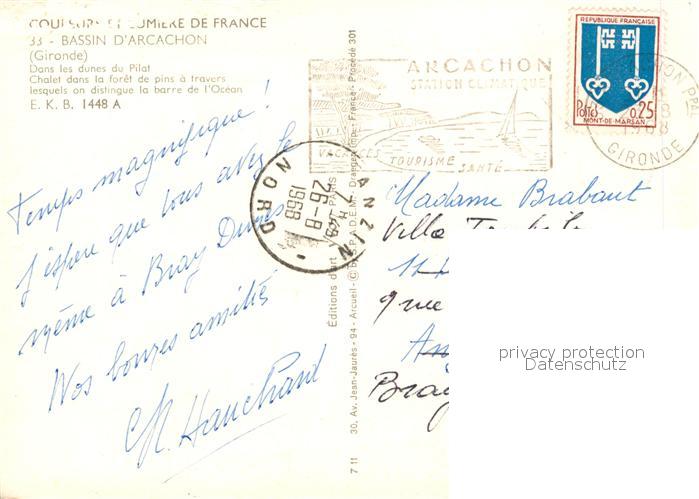 COULEURS ET LUMIERE DE FRANCE
33 - BASSIN D'ARCACHON
(Gironde)
Dans les dunes du Pilat
Chalet dans la forêt de pins à travers
lesquels on distingue la barre de l'Océan
E. K. B. 1448 A
Temps magnifique !
J'espère que vous avez le
même à Bray Dunes
Nos bonnes amitiés
30, Av. Jean-Jaurès - 94 - Arcueil - © by S.P.A.D.E.M. - Draeger Imp. France - Procédé 301
Editions d'art
PARIS
7 11
ARCACHON
STATION CLIMATIQUE
VACANCES TOURISME SANTÉ
REPUBLIQUE FRANÇAISE
Postes 0,25
MONT-DE-MARSAN
1968
GIRONDE
ANZIN
7H
26-8
1968
NORD
Madame Brabant
Villa
rue
Bray
privacy protection
Datenschutz